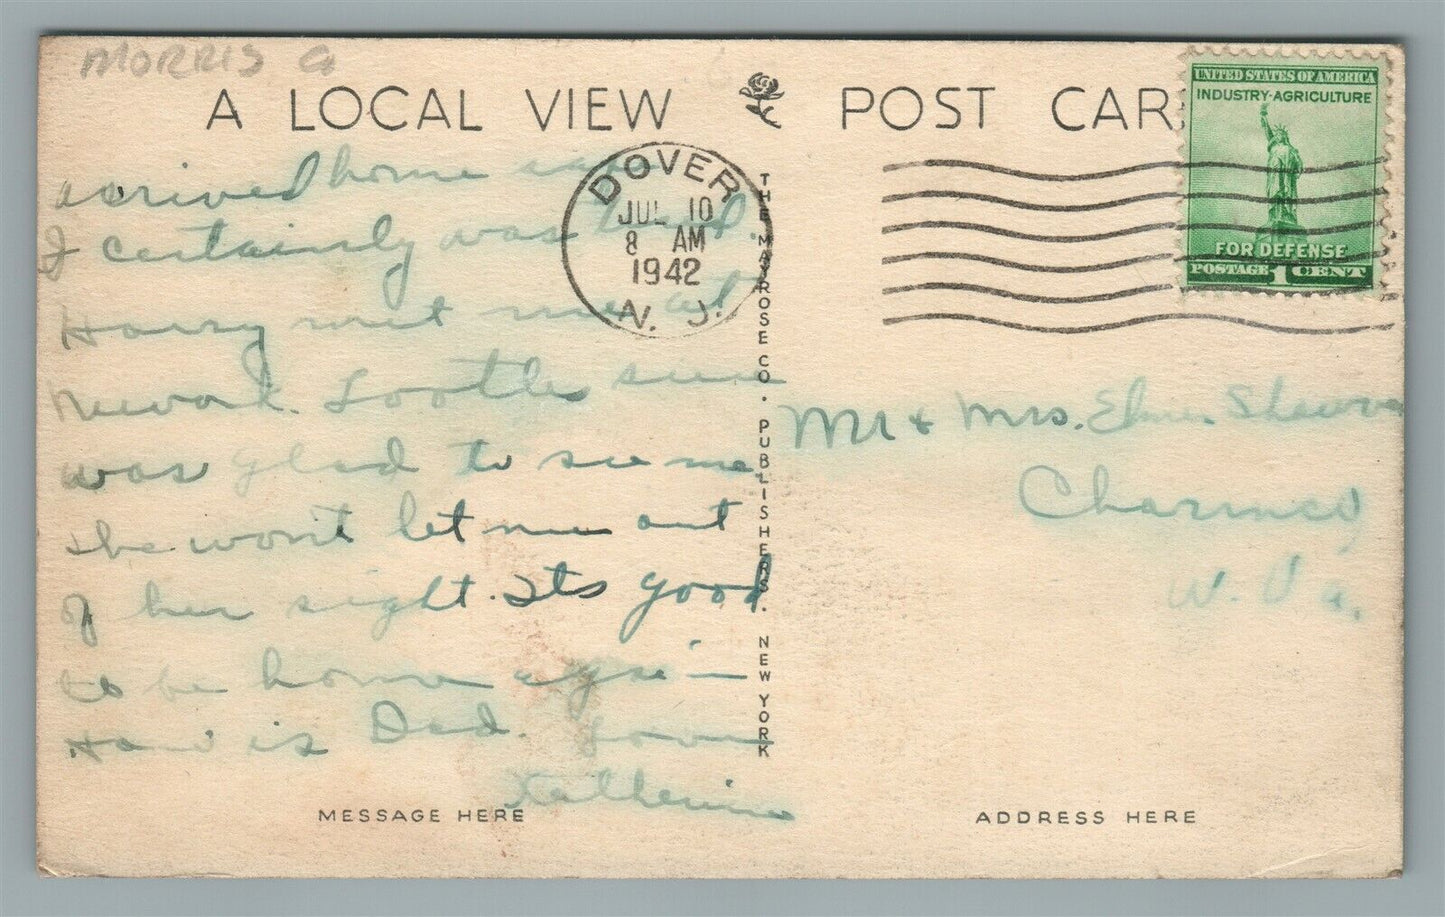 MORRIS
A LOCAL VIEW POST CAR
UNITED STATES OF AMERICA
INDUSTRY-AGRICULTURE
FOR DEFENSE
POSTAGE 1 CENT
DOVER
JUL 10
8 AM
1942
N. J.
arrived home
I certainly was
Harry met me at
Newark. Lootle
was glad to see me
she won't let me out
of her sight. Its good
to be home again
How is Dad.
Katherine
THE MAYROSE CO. PUBLISHERS. NEW YORK
Mr & Mrs. Elmer
Charmco
W. Va.
MESSAGE HERE
ADDRESS HERE